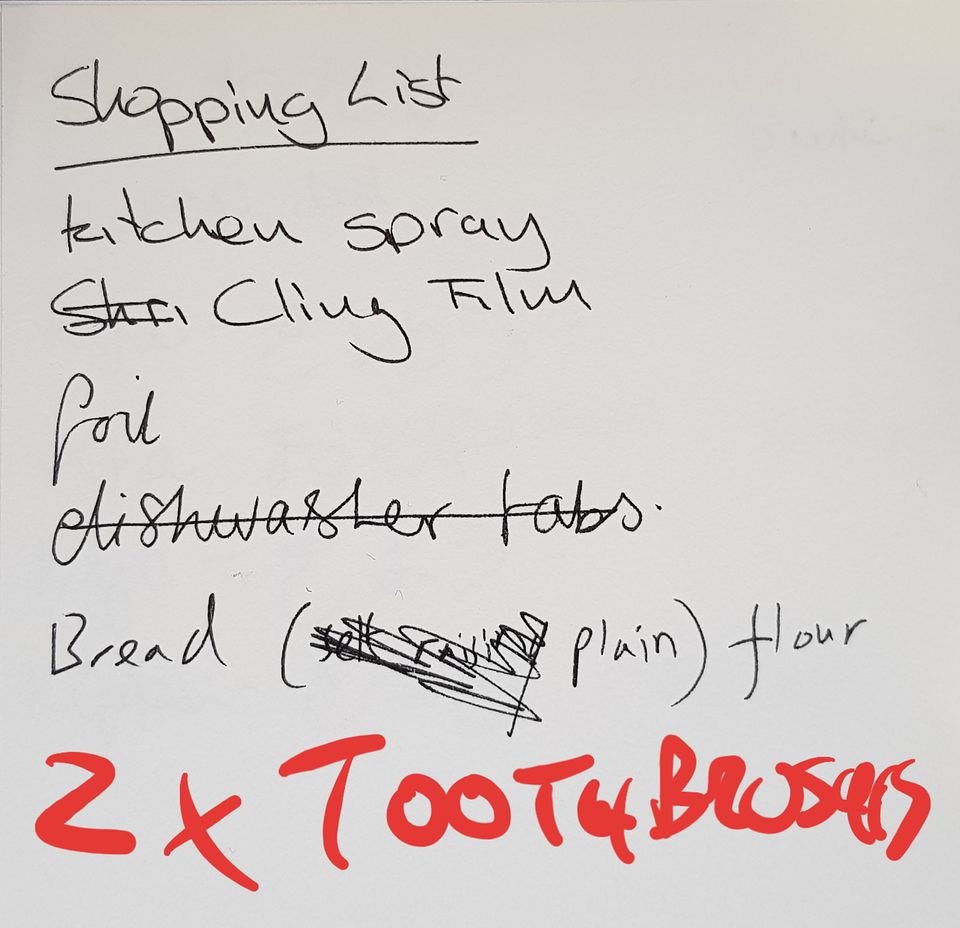 Shopping List
kitchen spray
Shri Cling Film
foil
dishwasher tabs.
Bread (self raising plain) flour
2 x TOOTHBRUSHES